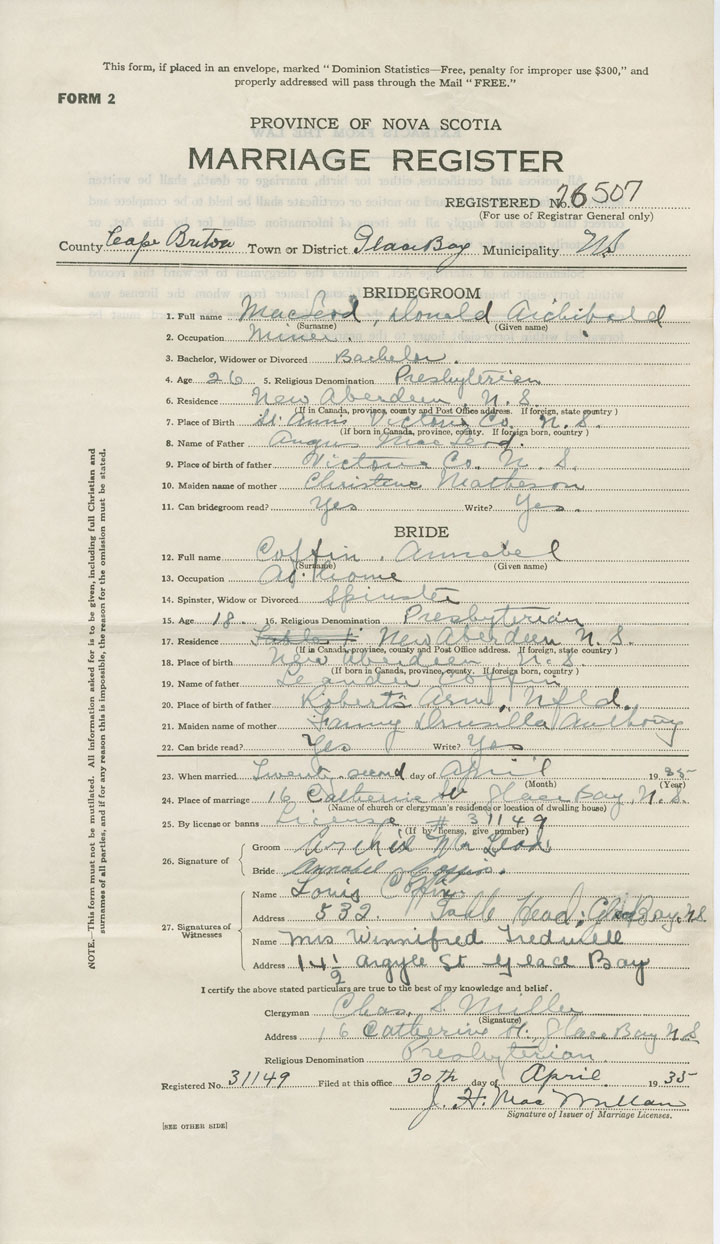 This form, if placed in an envelope, marked "Dominion Statistics—Free, penalty for improper use $300," and
properly addressed will pass through the Mail "FREE."
FORM 2
PROVINCE OF NOVA SCOTIA
MARRIAGE REGISTER
REGISTERED No. 76507
(For use of Registrar General only)
County Cape Breton Town or District Glace Bay Municipality NS
BRIDEGROOM
1. Full name MacLeod, Donald Archibald
(Surname) (Given name)
2. Occupation Miner.
3. Bachelor, Widower or Divorced Bachelor.
4. Age 26 5. Religious Denomination Presbyterian
6. Residence New Aberdeen, N.S.
(If in Canada, province, county and Post Office address. If foreign, state country)
7. Place of Birth St. Anns Victoria Co. N.S.
(If born in Canada, province, county. If foreign born, country)
8. Name of Father Angus MacLeod.
9. Place of birth of father Victoria Co. N.S.
10. Maiden name of mother Christine Matheson
11. Can bridegroom read? Yes Write? Yes.
BRIDE
12. Full name Coffin, Annabel
(Surname) (Given name)
13. Occupation At Home
14. Spinster, Widow or Divorced Spinster
15. Age 18. 16. Religious Denomination Presbyterian
17. Residence New Aberdeen N.S.
(If in Canada, province, county and Post Office address. If foreign, state country)
18. Place of birth New Aberdeen, N.S.
(If born in Canada, province, county. If foreign born, country)
19. Name of father Leander Coffin
20. Place of birth of father Roberts Arm, Nfld.
21. Maiden name of mother Fanny Drusilla Anthony
22. Can bride read? Yes Write? Yes
23. When married Twenty second day of April 1935
(Month) (Year)
24. Place of marriage 16 Catherine St. Glace Bay N.S.
(Name of church or clergyman's residence or location of dwelling house)
25. By license or banns License # 31149
(If by license, give number)
26. Signature of
Groom Archie McLeod
Bride Annabel Coffin.
27. Signatures of Witnesses
Name Louis Coffin
Address 532 Table Head, Glace Bay, N.S.
Name Mrs Winnifred Tredwell
Address 14 1/2 Argyle St Glace Bay
I certify the above stated particulars are true to the best of my knowledge and belief.
Clergyman Chas. S. Miller
(Signature)
Address 16 Catherine St. Glace Bay N.S.
Religious Denomination Presbyterian.
Registered No. 31149 Filed at this office 30th day of April 1935
J. H. MacMillan
Signature of Issuer of Marriage Licenses.
[SEE OTHER SIDE]
NOTE.—This form must not be mutilated. All information asked for is to be given, including full Christian and
surnames of all parties, and if for any reason this is impossible, the reason for the omission must be stated.